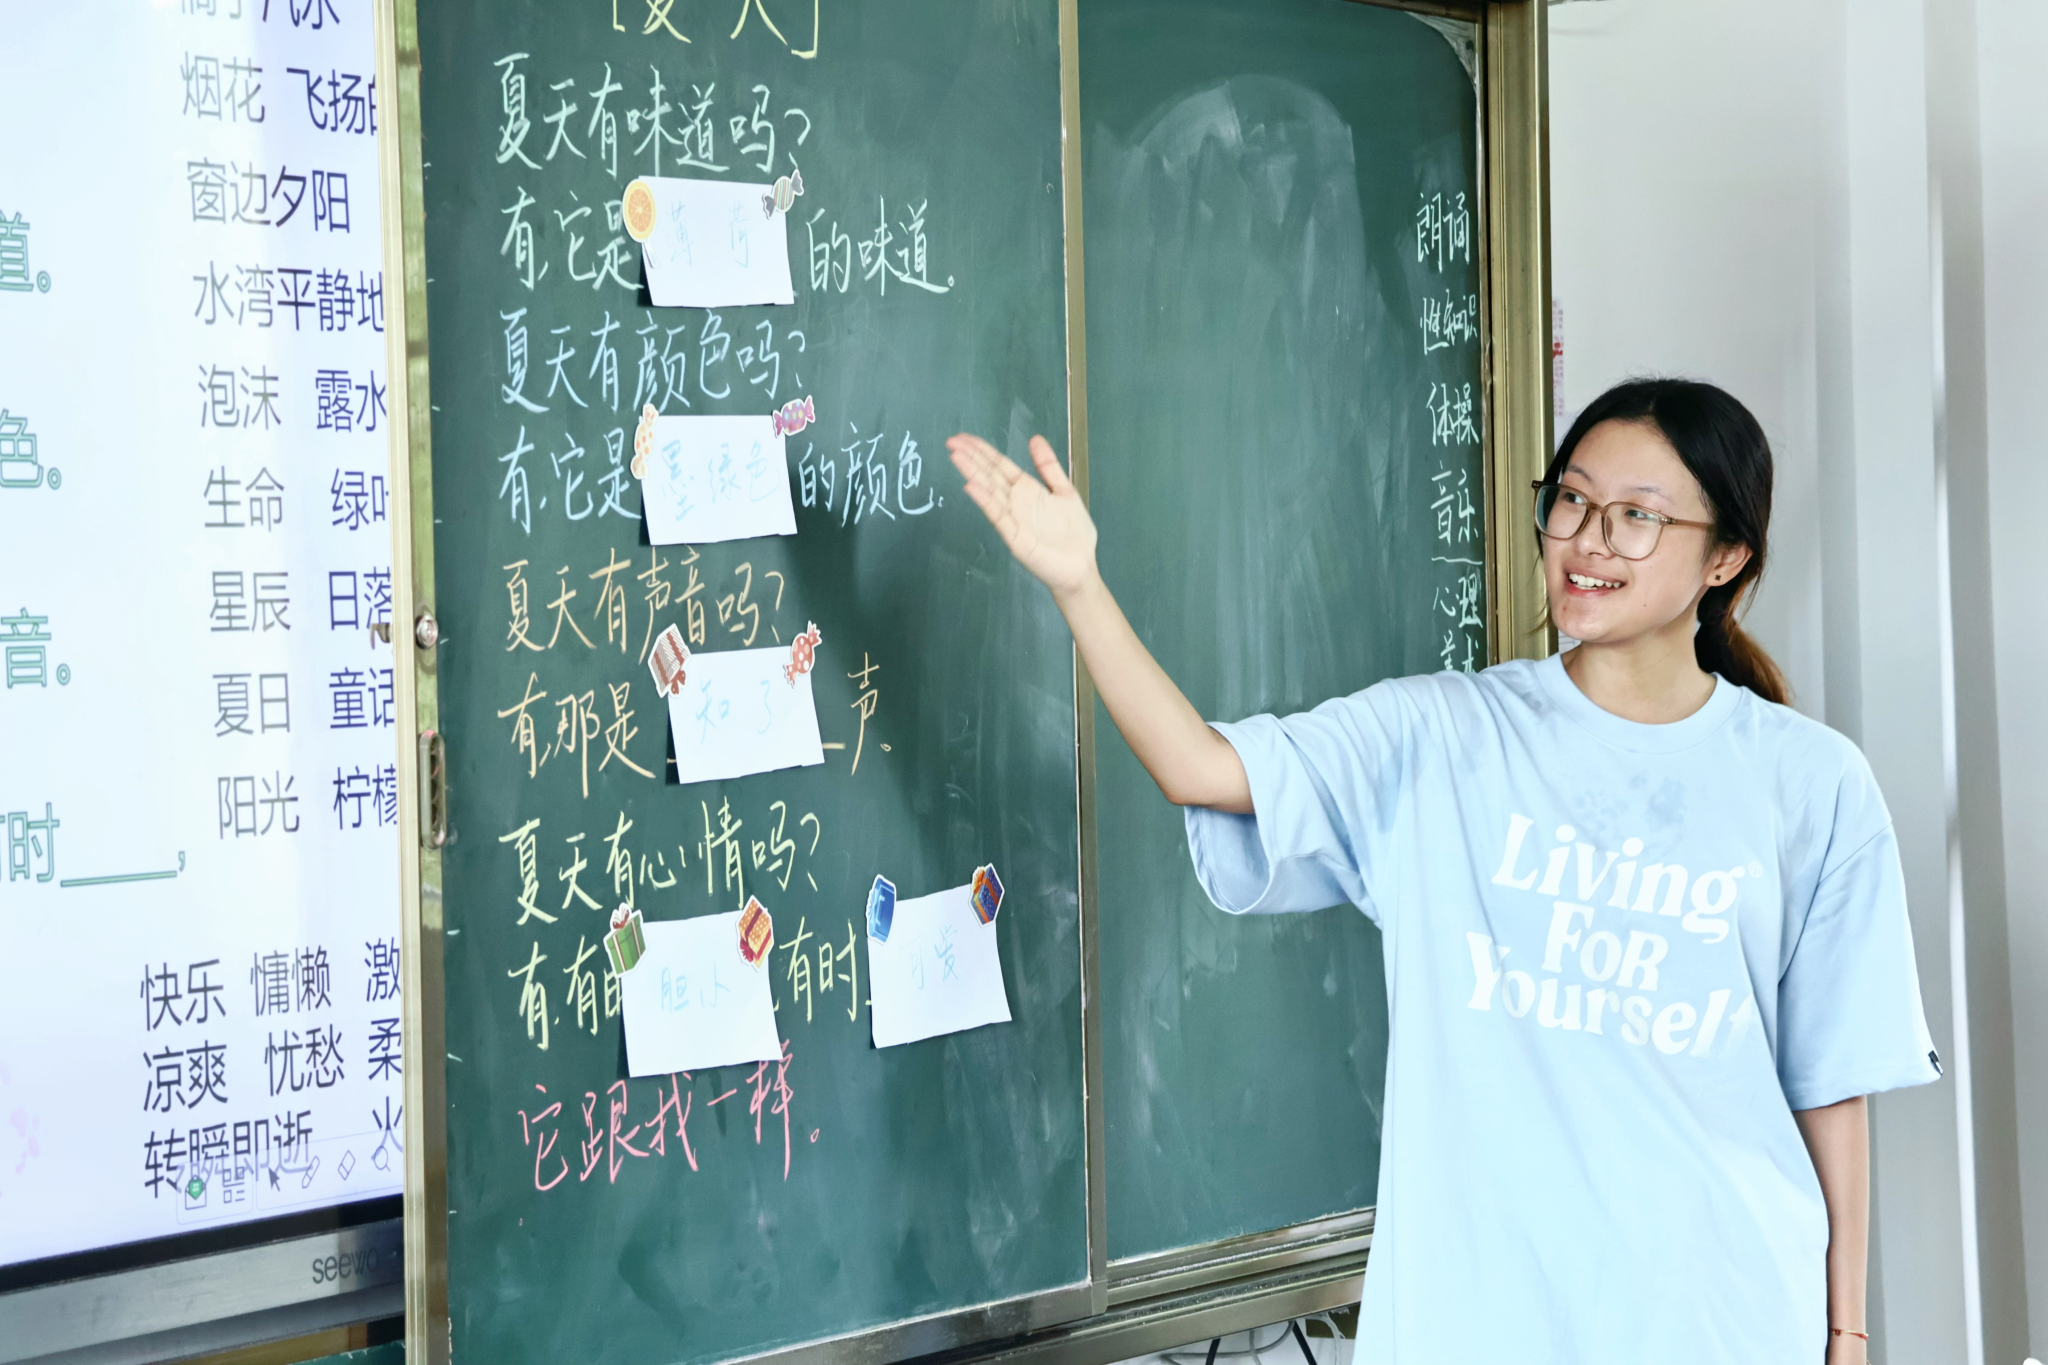 汽水
烟花 飞扬的
窗边夕阳
水湾平静地
泡沫 露水
生命 绿叶
星辰 日落
夏日 童话
阳光 柠檬
道。
色。
音。
有时____，
快乐 慵懒 激
凉爽 忧愁 柔
转瞬即逝 火
seewo
[夏天]
夏天有味道吗?
有,它是薄荷的味道。
夏天有颜色吗?
有,它是墨绿色的颜色。
夏天有声音吗?
有,那是知了声。
夏天有心情吗?
有,有时胆小,有时
它跟我一样。
朗诵
性知识
体操
音乐
心理
美术
Living
FoR
Yourself